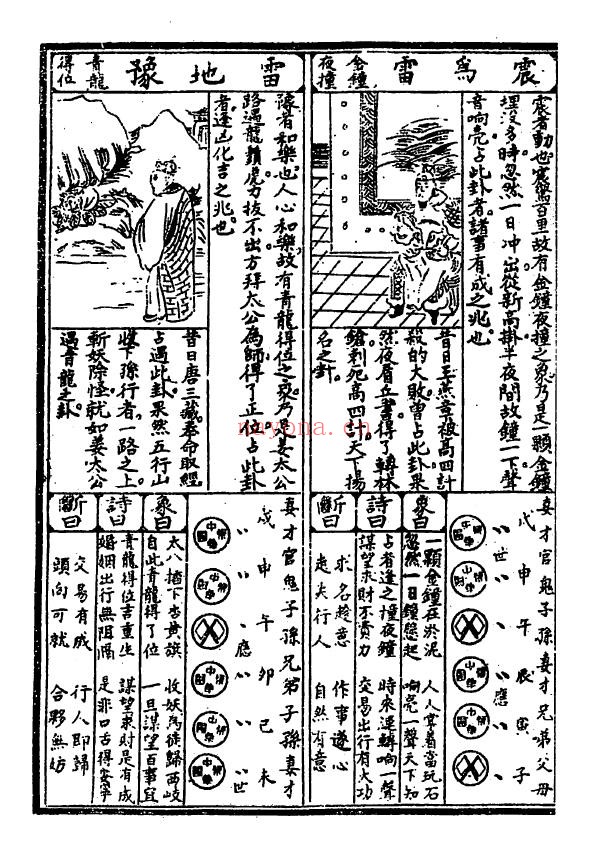 震為雷
金鐘
夜撞
震者動也震驚百里故有金鐘夜撞之象乃是一顆金鐘
埋没多時忽然一日冲出從新高掛半夜間故鐘一下聲
音响亮占此卦者諸事有成之兆也
昔日王燕章被高四計
殺的大敗曾占此卦果
然夜眉丘
鎗刺死高四計天下揚
名之卦
妻才官鬼子孫妻才兄弟父母
戌申午辰寅子
世
應
象曰
一顆金鐘在於泥 人人拿着當玩石
忽然一日鐘懸起 响亮一聲天下知
詩曰
占者逢之撞夜鐘 時來運轉响一聲
謀望求財不費力 交易出行有大功
斷曰
求名趁意 作事遂心
走失行人 自然有意
雷地豫
青龍
得位
豫者和樂也人心和樂故有青龍得位之象乃是姜太公
路遇龍鬚虎力拔不出方拜太公為師得了正位占此卦
者逢凶化吉之兆也
昔日唐三藏奉命取經
占遇此卦果然五行山
收下孫行者一路之上
斬妖除怪就如姜太公
遇青龍之卦
妻才官鬼子孫兄弟子孫妻才
戌申午卯巳未
應
世
象曰
太公插下杏黄旗 收妖為徒歸西岐
自此青龍得了位 一旦謀望百事宜
詩曰
青龍得位吉重生 謀望求財是有成
婚姻出行無阻隔 是非口舌得安寧
斷曰
交易有成 行人即歸
頭向可就 合夥無妨
nayona.cn